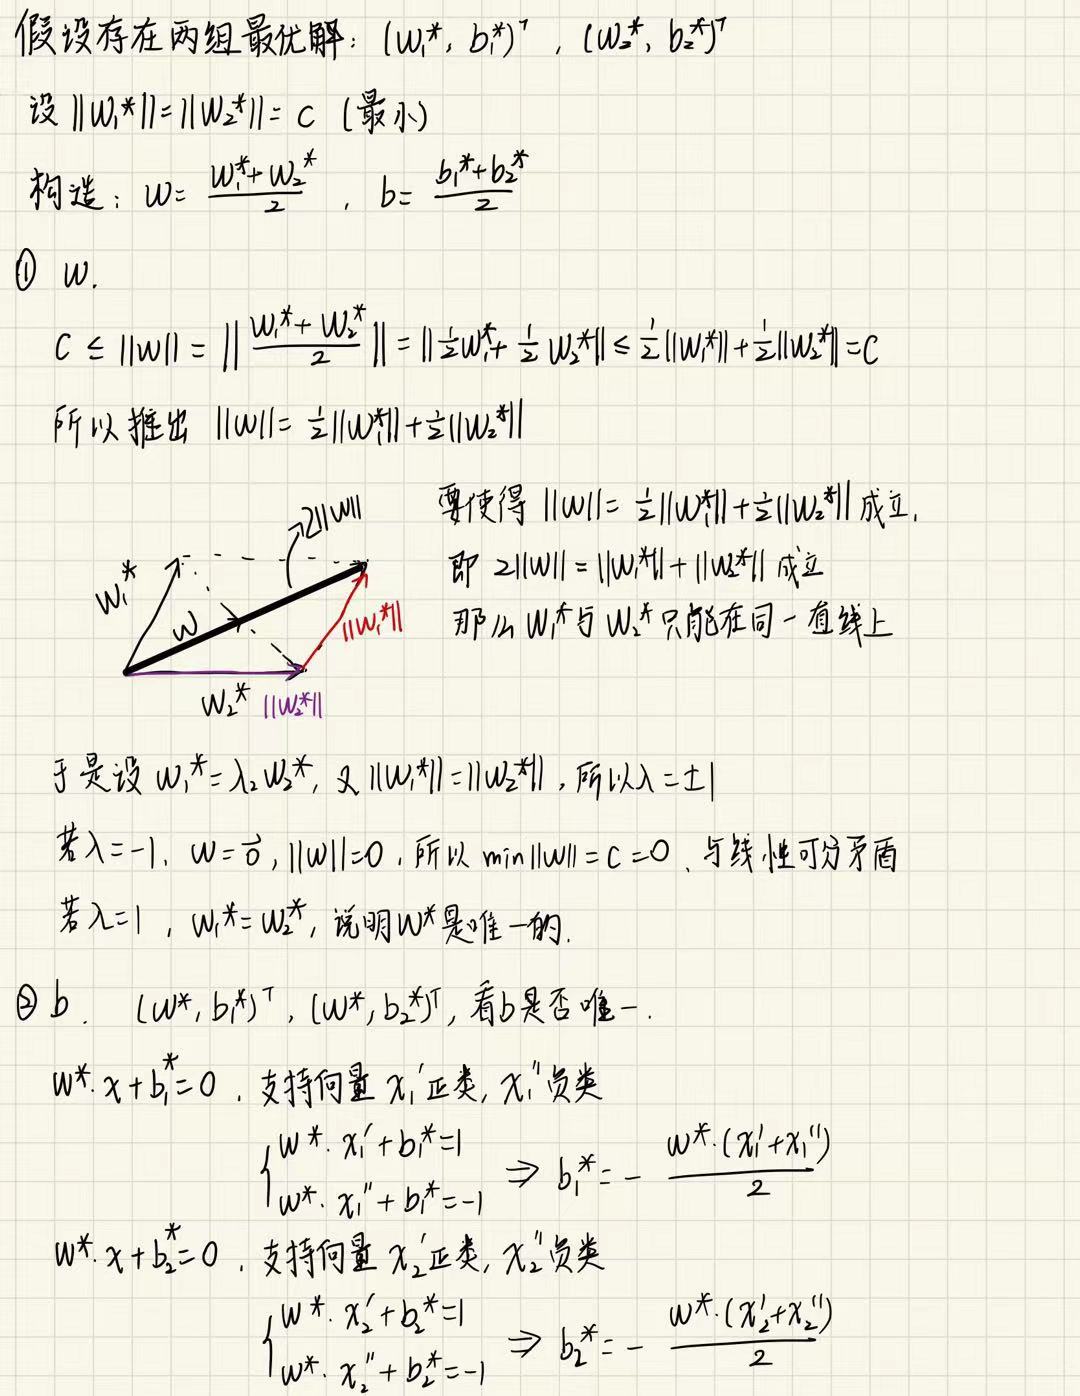 假设存在两组最优解：(w₁*, b₁*)ᵀ , (w₂*, b₂*)ᵀ
设 ||w₁*||=||w₂*||= c (最小)
构造：w= (w₁*+w₂*)/2 , b= (b₁*+b₂*)/2
① w.
C ≤ ||w|| = ||(w₁*+w₂*)/2|| = ||½w₁*+½w₂*|| ≤ ½||w₁*||+½||w₂*||=C
所以推出 ||w||= ½||w₁*||+½||w₂*||
要使得 ||w||= ½||w₁*||+½||w₂*|| 成立,
即 2||w||=||w₁*||+||w₂*|| 成立
那么 w₁*与 w₂*只能在同一直线上
2||w||
w₁*
w
||w₁*||
w₂* ||w₂*||
于是设 w₁*=λ₂w₂*, 又 ||w₁*||=||w₂*||, 所以λ=±1
若λ=-1, w=0⃗, ||w||=0, 所以 min||w||=c=0、与线性可分矛盾
若λ=1, w₁*=w₂*, 说明w*是唯一的.
② b. (w*, b₁*)ᵀ, (w*, b₂*)ᵀ, 看b是否唯一.
w*·x+b₁*=0, 支持向量 x₁′正类, x₁″负类
{ w*·x₁′+b₁*=1
w*·x₁″+b₁*=-1 ⇒ b₁*= - w*·(x₁′+x₁″)/2
w*·x+b₂*=0, 支持向量 x₂′正类, x₂″负类
{ w*·x₂′+b₂*=1
w*·x₂″+b₂*=-1 ⇒ b₂*= - w*·(x₂′+x₂″)/2